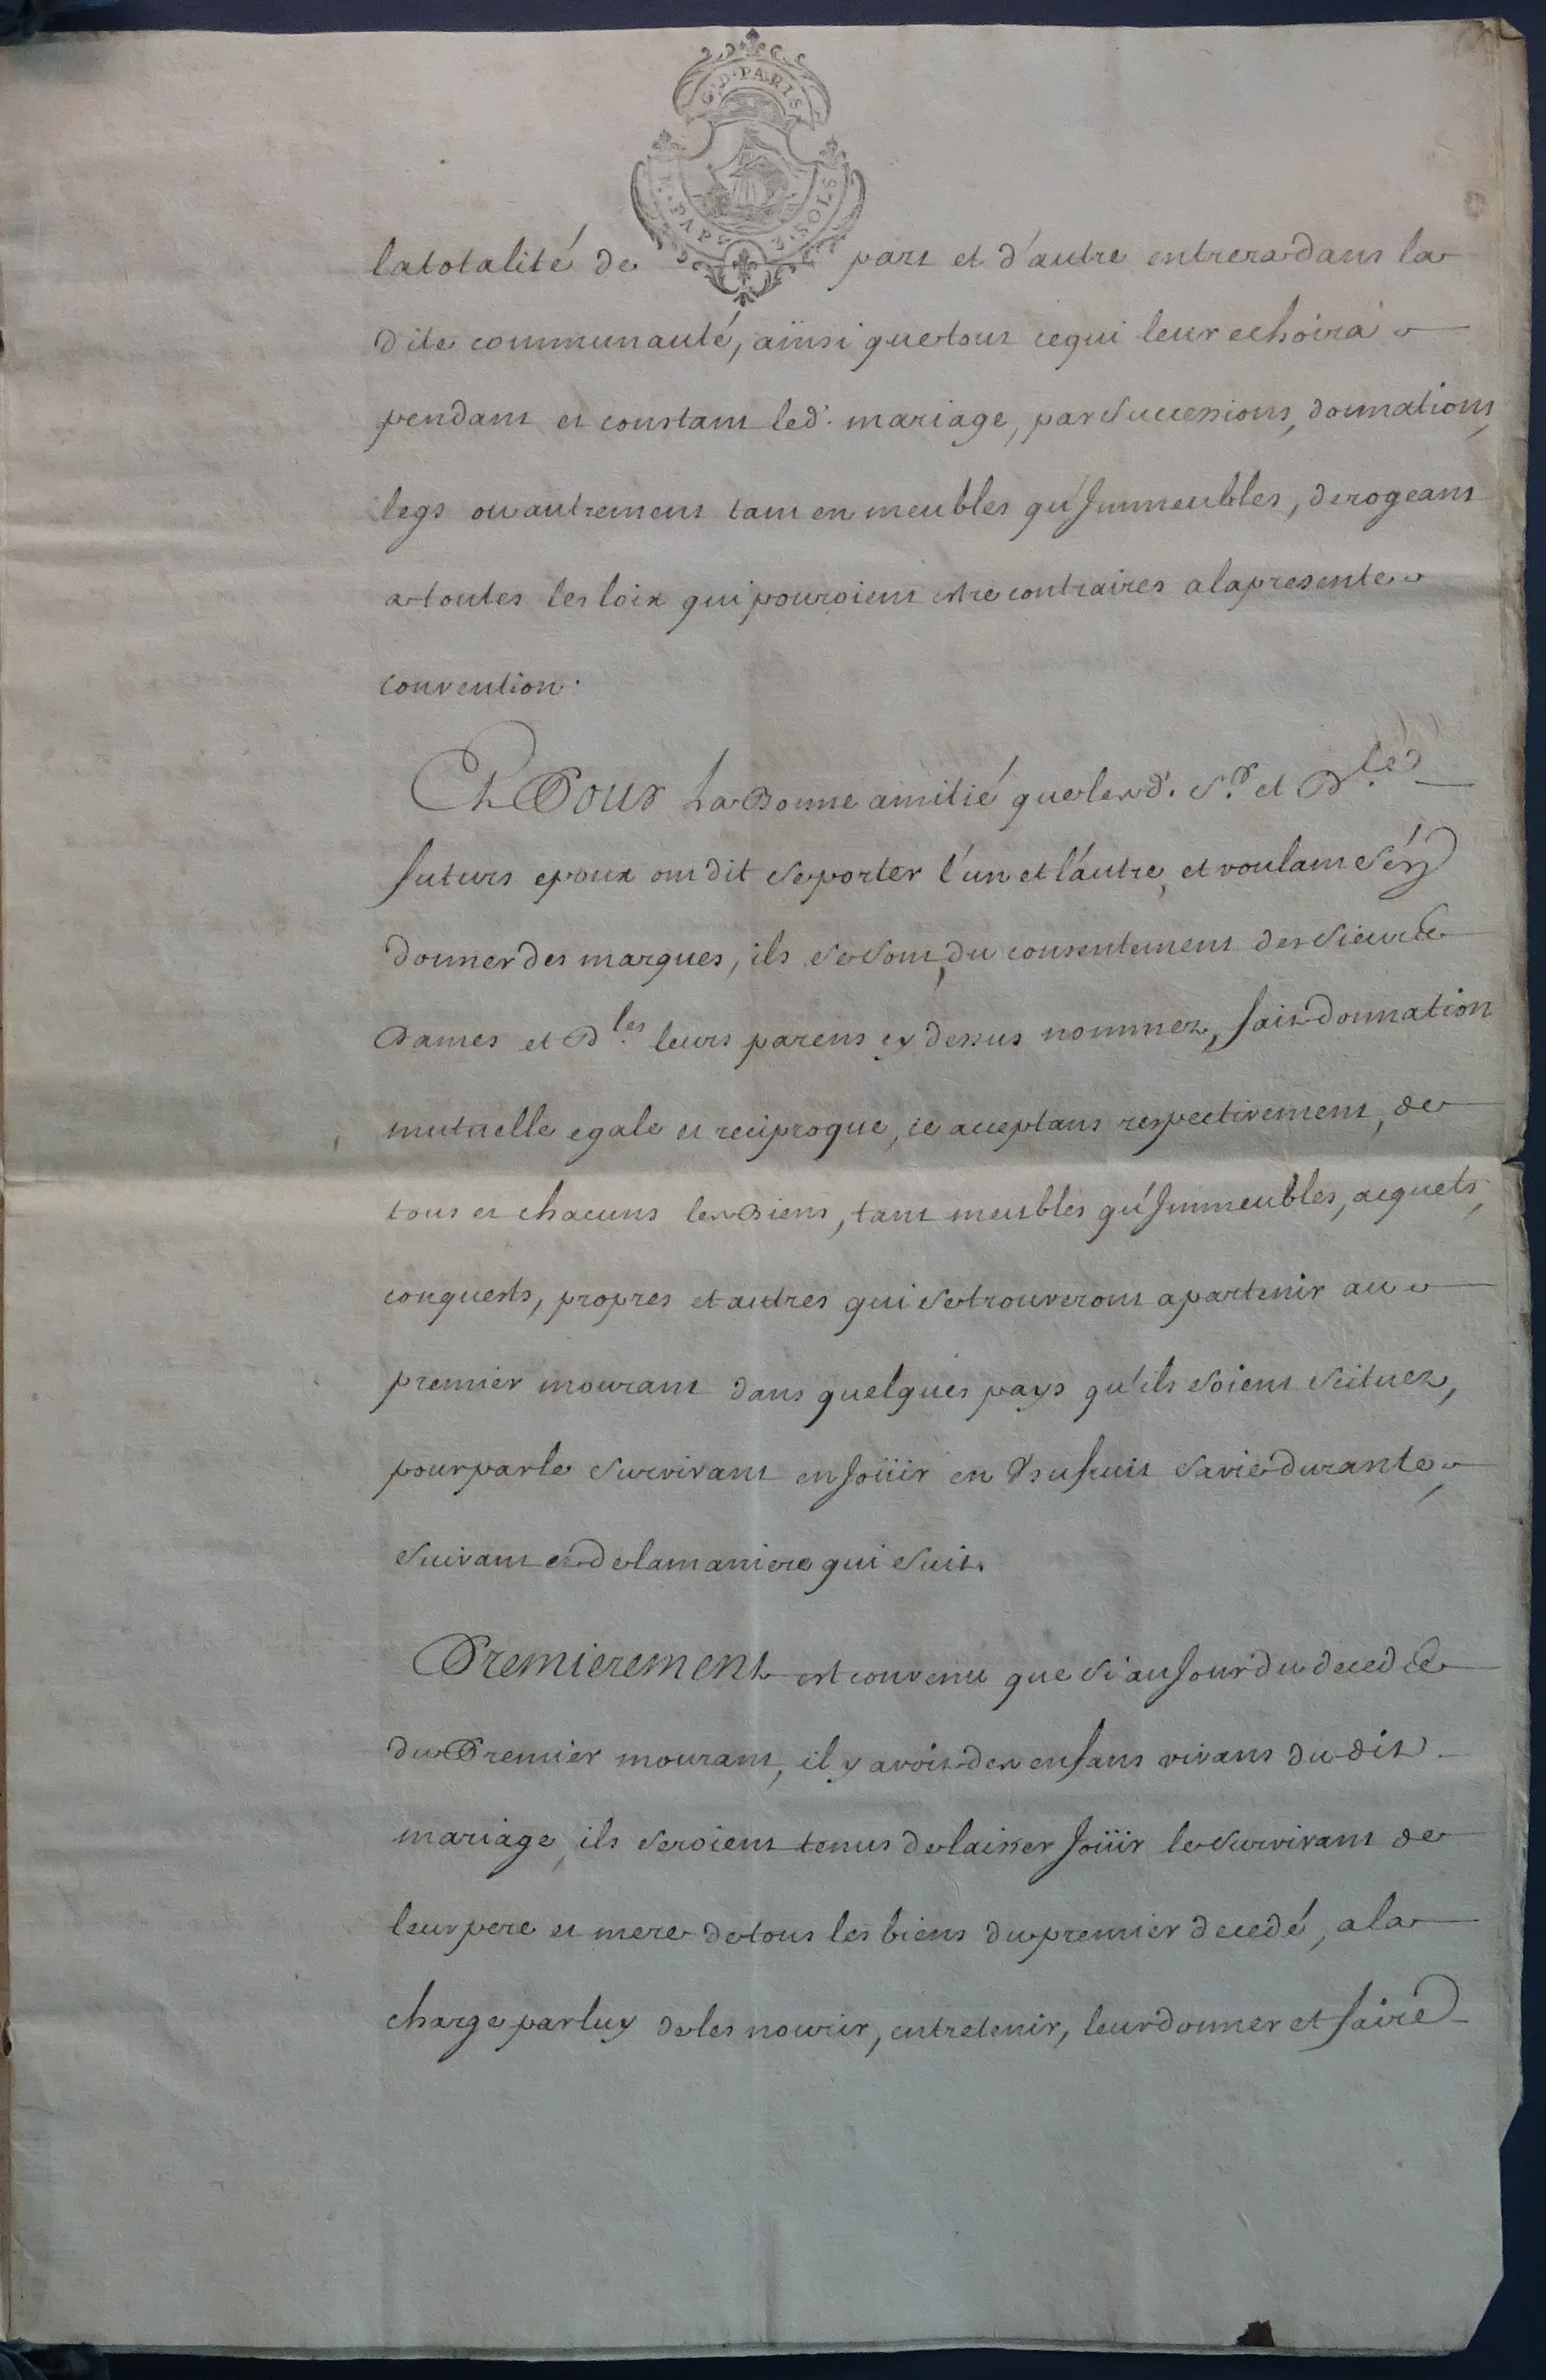 G.D.PARIS
M.PAP. 3.SOLS
la totalité de part et d'autre entrera dans la
dite communauté, ainsi que tout ce qui leur echoira
pendant et constant led. mariage, par successions, donnations,
legs ou autrement tant en meubles qu'Jmmeubles, derogeant
a toutes les loix qui pouroient estre contraires a la presente
convention.
Et Pour La Bonne amitié que lesd. Sr. et Dlle.
futurs epoux ont dit se porter l'un et l'autre, et voulant s'en
donner des marques, ils se sont, du consentement des sieurs
Dames et Dlles. leurs parens cy dessus nommez, fait donnation
mutuelle egale et reciproque, ce acceptans respectivement, de
tous et chacuns les Biens, tant meubles qu'Jmmeubles, acquets,
conquests, propres et autres qui se trouveront apartenir au
premier mourant dans quelques pays qu'ils soient scituez,
pour par le survivant en Joüir en Usufruit sa vie durante,
suivant et de la maniere qui suit.
Premierement est convenu que si au Jour du deced
du Premier mourant, il y avoit des enfans vivans du dit
mariage, ils seroient tenus de laisser Joüir le survivant de
leur pere et mere de tous les biens du premier decedé, a la
charge par luy de les nourir, entretenir, leur donner et faire